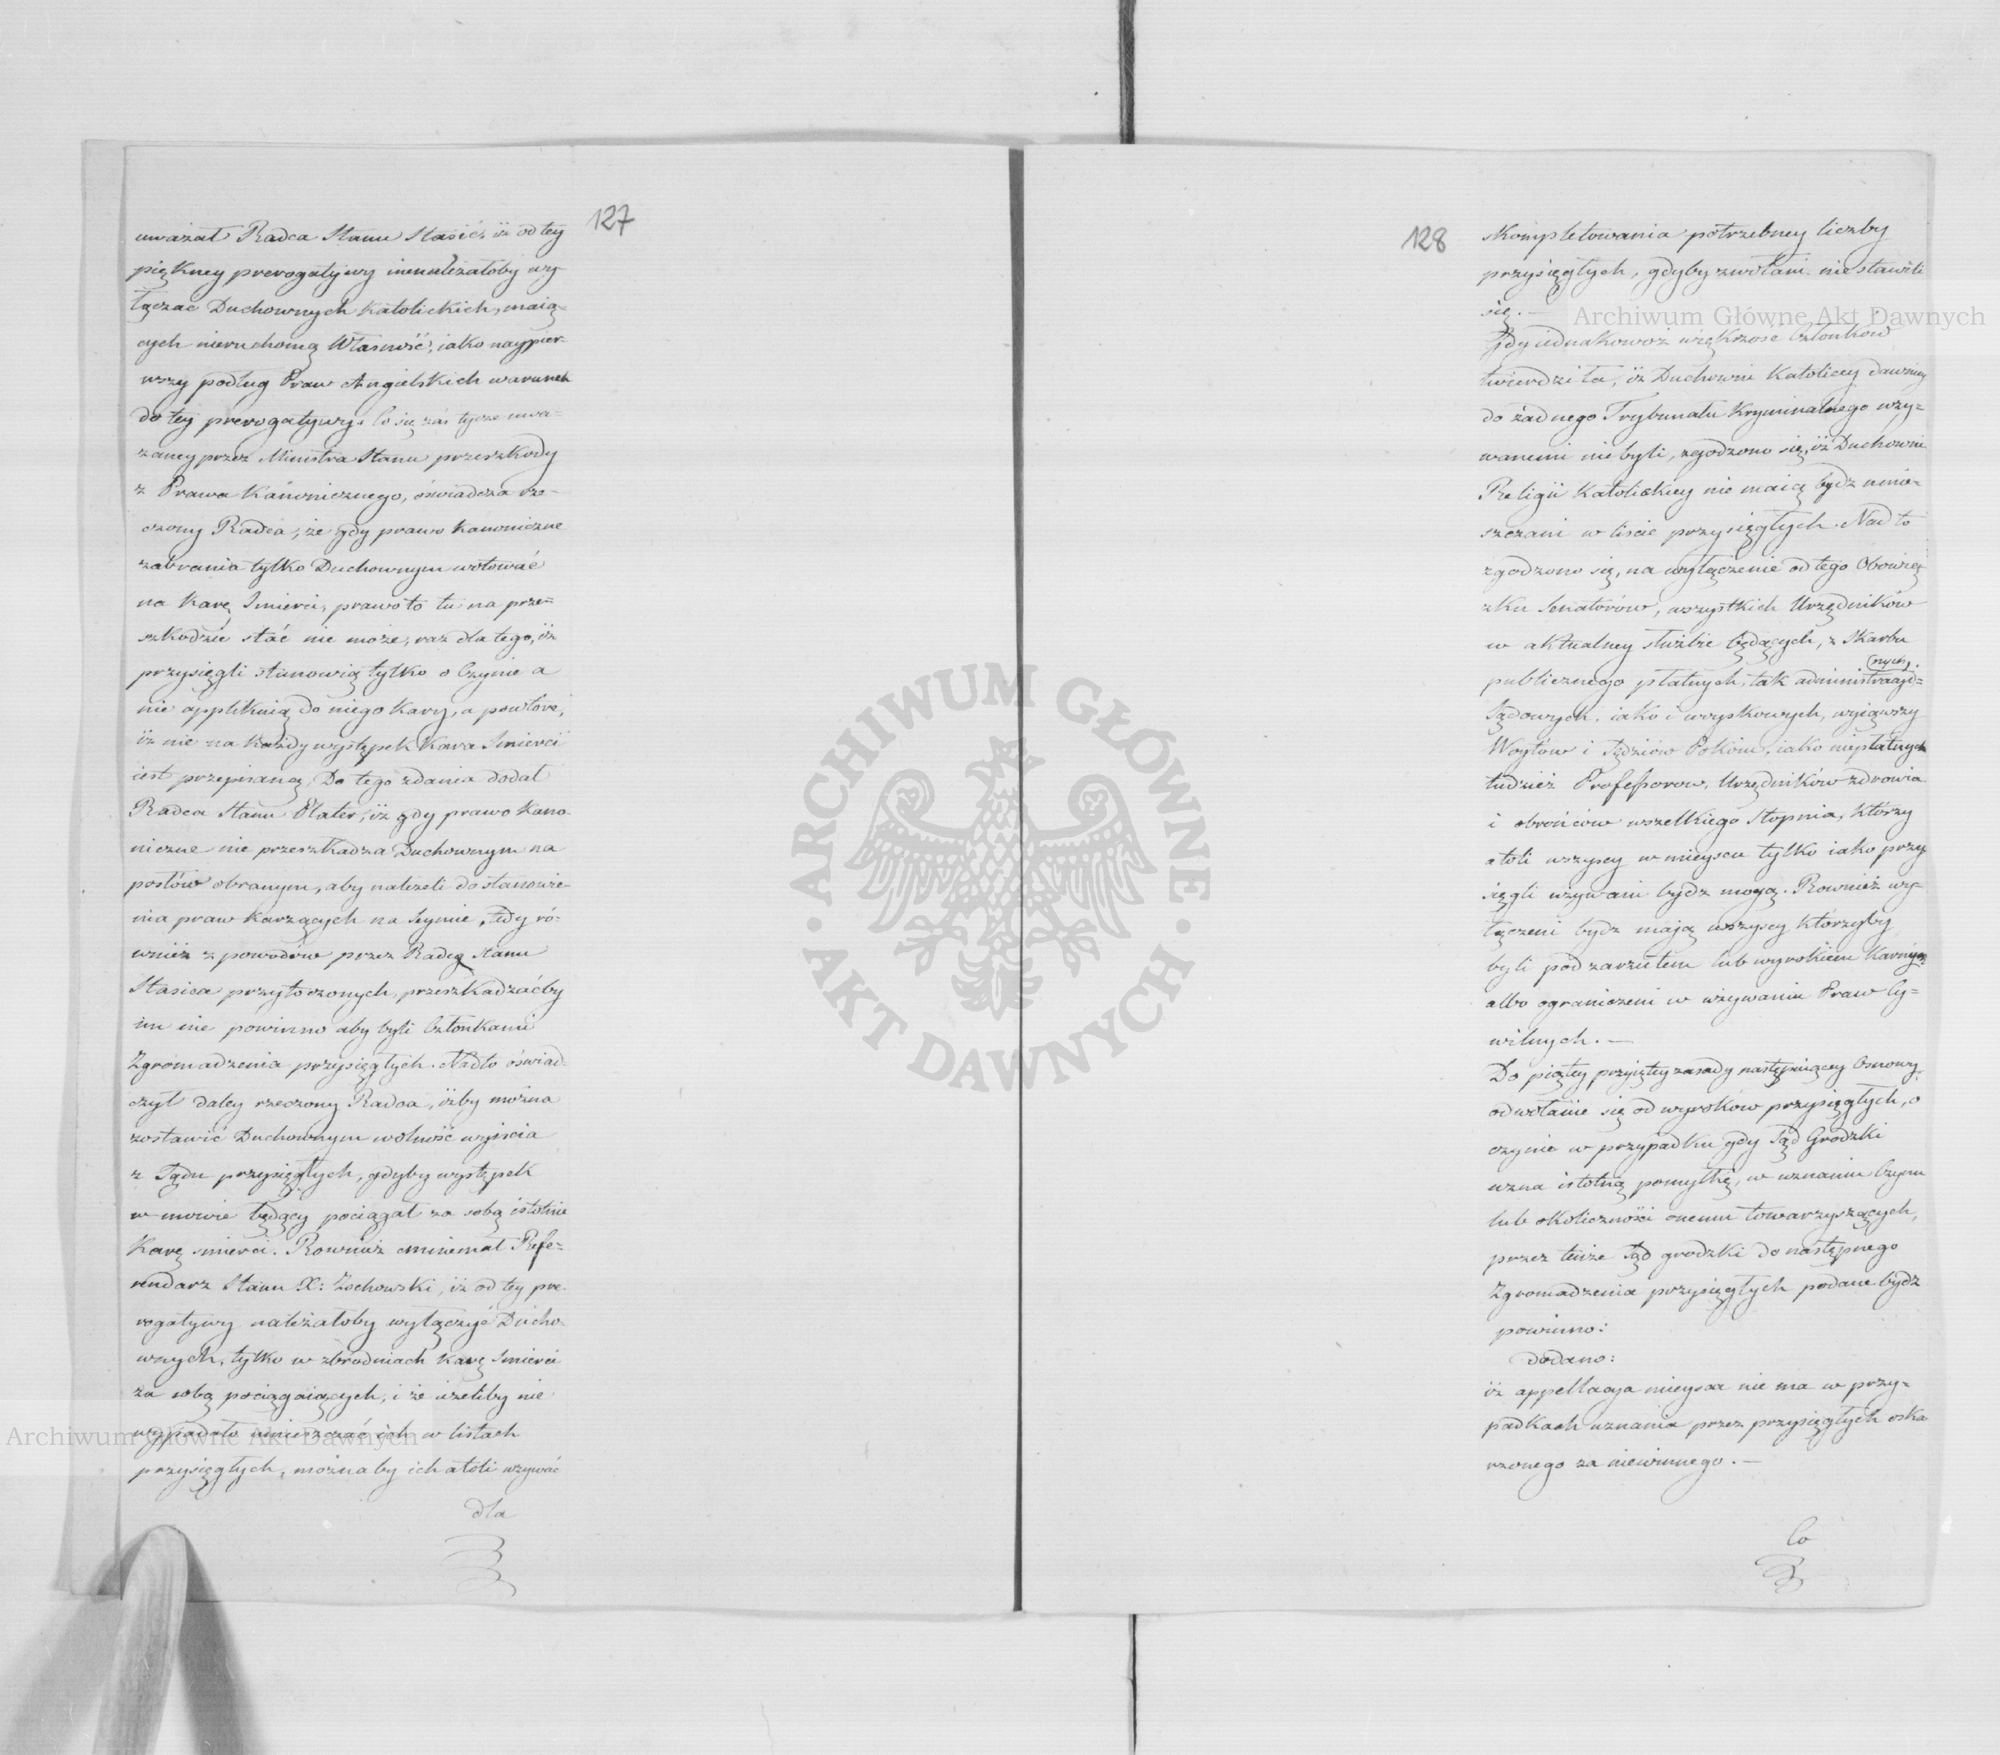 127
uważał Radca Stanu Stasic, iż od tey
piękney prerogatywy nienależałoby wy-
łączać Duchownych Katolickich, maią-
cych nieruchomą Własność, iako naypier-
wszy podług Praw Angielskich warunek
do tey prerogatywy. Co się zaś tycze uwa-
żaney przez Ministra Stanu przeszkody
z Prawa Kanonicznego, oświadcza rze-
czony Radca, że gdy prawo Kanoniczne
zabrania tylko Duchownym wotować
na Karę Smierci, prawo to tu na prze-
szkodzie stać nie może, raz dla tego, iż
przysięgli stanowią tylko o Czynie a
nie applikuią do niego Kary, a powtóre,
iż nie na każdy występek Kara Smierci
iest przepisaną. Do tego zdania dodał
Radca Stanu Plater, iż gdy prawo Kano-
niczne nie przeszkadza Duchownym na
posłów obranym, aby należeli do stanowie-
nia praw karzących na Seymie, tedy ró-
wnież z powodów przez Radcę Stanu
Stasica przytoczonych, przeszkadzaćby
im nie powinno aby byli Członkami
Zgromadzenia przysięgłych. Nadto oświad-
czył daley rzeczony Radca, iżby można
zostawić Duchownym wolność wyiścia
z Sądu przysięgłych, gdyby występek
w mowie będący pociągał za sobą istotnie
Karę smierci. Rownież mniemał Refe-
rendarz Stanu X: Zochowski, iż od tey pre-
rogatywy należałoby wyłączyć Ducho-
wnych, tylko w zbrodniach karę Smierci
za sobą pociągaiących, i że ieżeliby nie
wypadało umieszczać ich w listach
przysięgłych, można by ich atoli wzywać
dla
128
skompletowania potrzebney liczby
przysięgłych, gdyby zwołani nie stawili
się. —
Gdy iednakowoż większość Członków
twierdziła, iż Duchowni Katoliccy dawniey
do żadnego Trybunału Kryminalnego wzy-
wanemi niebyli, zgodzono się, iż Duchowni
Religii Katolickiey nie maią bydź umie-
szczani w liście przysięgłych. Nad to
zgodzono się, na wyłączenie od tego Obowią-
zku Senatorów, wszystkich Urzędników
w aktualney służbie będących, z Skarbu
publicznego płatnych, tak administracyi-
(nych,
Sądowych, iako i woyskowych, wyiąwszy
Woytów i Sędziów Pokoiu, iako niepłatnych
tudzież Professorow, Urzędników zdrowia
i obrońców wszelkiego stopnia, którzy
atoli wszyscy w mieyscu tylko iako przy
sięgli wzywani bydź mogą. Rownież wy-
łączeni bydź maią wszyscy którzyby
byli pod zarzutem lub wyrokiem Karnym
albo ograniczeni w używaniu Praw Cy-
wilnych. —
Do piątey przyiętey zasady następuiącey Osnowy
odwołanie się od wyroków przysięgłych, o
czynie w przypadku gdy Sąd Grodzki
uzna istotną pomyłkę, w uznaniu Czynu
lub okoliczności onemu towarzyszących,
przez tenże Sąd grodzki do następnego
Zgromadzenia przysięgłych podane bydź
powinno:
dodano:
iż appellacya mieysca nie ma w przy-
padkach uznania przez przysięgłych oska
rzonego za niewinnego. —
Co
ARCHIWUM GŁÓWNE AKT DAWNYCH
Archiwum Główne Akt Dawnych
Archiwum Główne Akt Dawnych